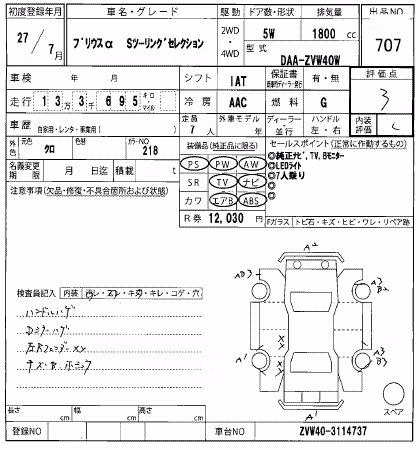 初度登録年月 車名・グレード 駆動 ドア数・形状 排気量 出品NO
27/7月 プリウスα Sツーリングセレクション 2WD 4WD 5W 1800 cc 707
型式 DAA-ZVW40W
車検 年 月 シフト IAT 保証書 エアコン AW 評価点 3
走行 13万3千695 キロ・マイル 冷房 AAC 燃料 G
車歴 自家用・レンタ・事業用( ) 定員 7人 外車モデル 年 ディーラー 並行 ハンドル 左・右 内装評価 C
外色 元色 クロ 色替 カラーNO 218
装備品(純正品に限る) セールスポイント(正常に作動するもの)
PS PW AW ◎純正ナビ,TV,Bモニター
◎LEDライト
◎7人乗り
名義変更期限 月 日迄 積載 t SR TV ナビ
注意事項(欠品・修復・不具合箇所および状態) カワ エアB ABS
R券 12,030 円
Fガラス トビ石・キズ・ヒビ・ワレ・リペア跡
A2
AD3 A3 B2
検査員記入 内装 汚レ・スレ・キズ・キレ・コゲ・穴
ハンドルハゲ
XX
A1 A3 B3
XX
A1
スペア
長さ cm 幅 cm 高さ cm
登録NO 車台NO ZVW40-3114737